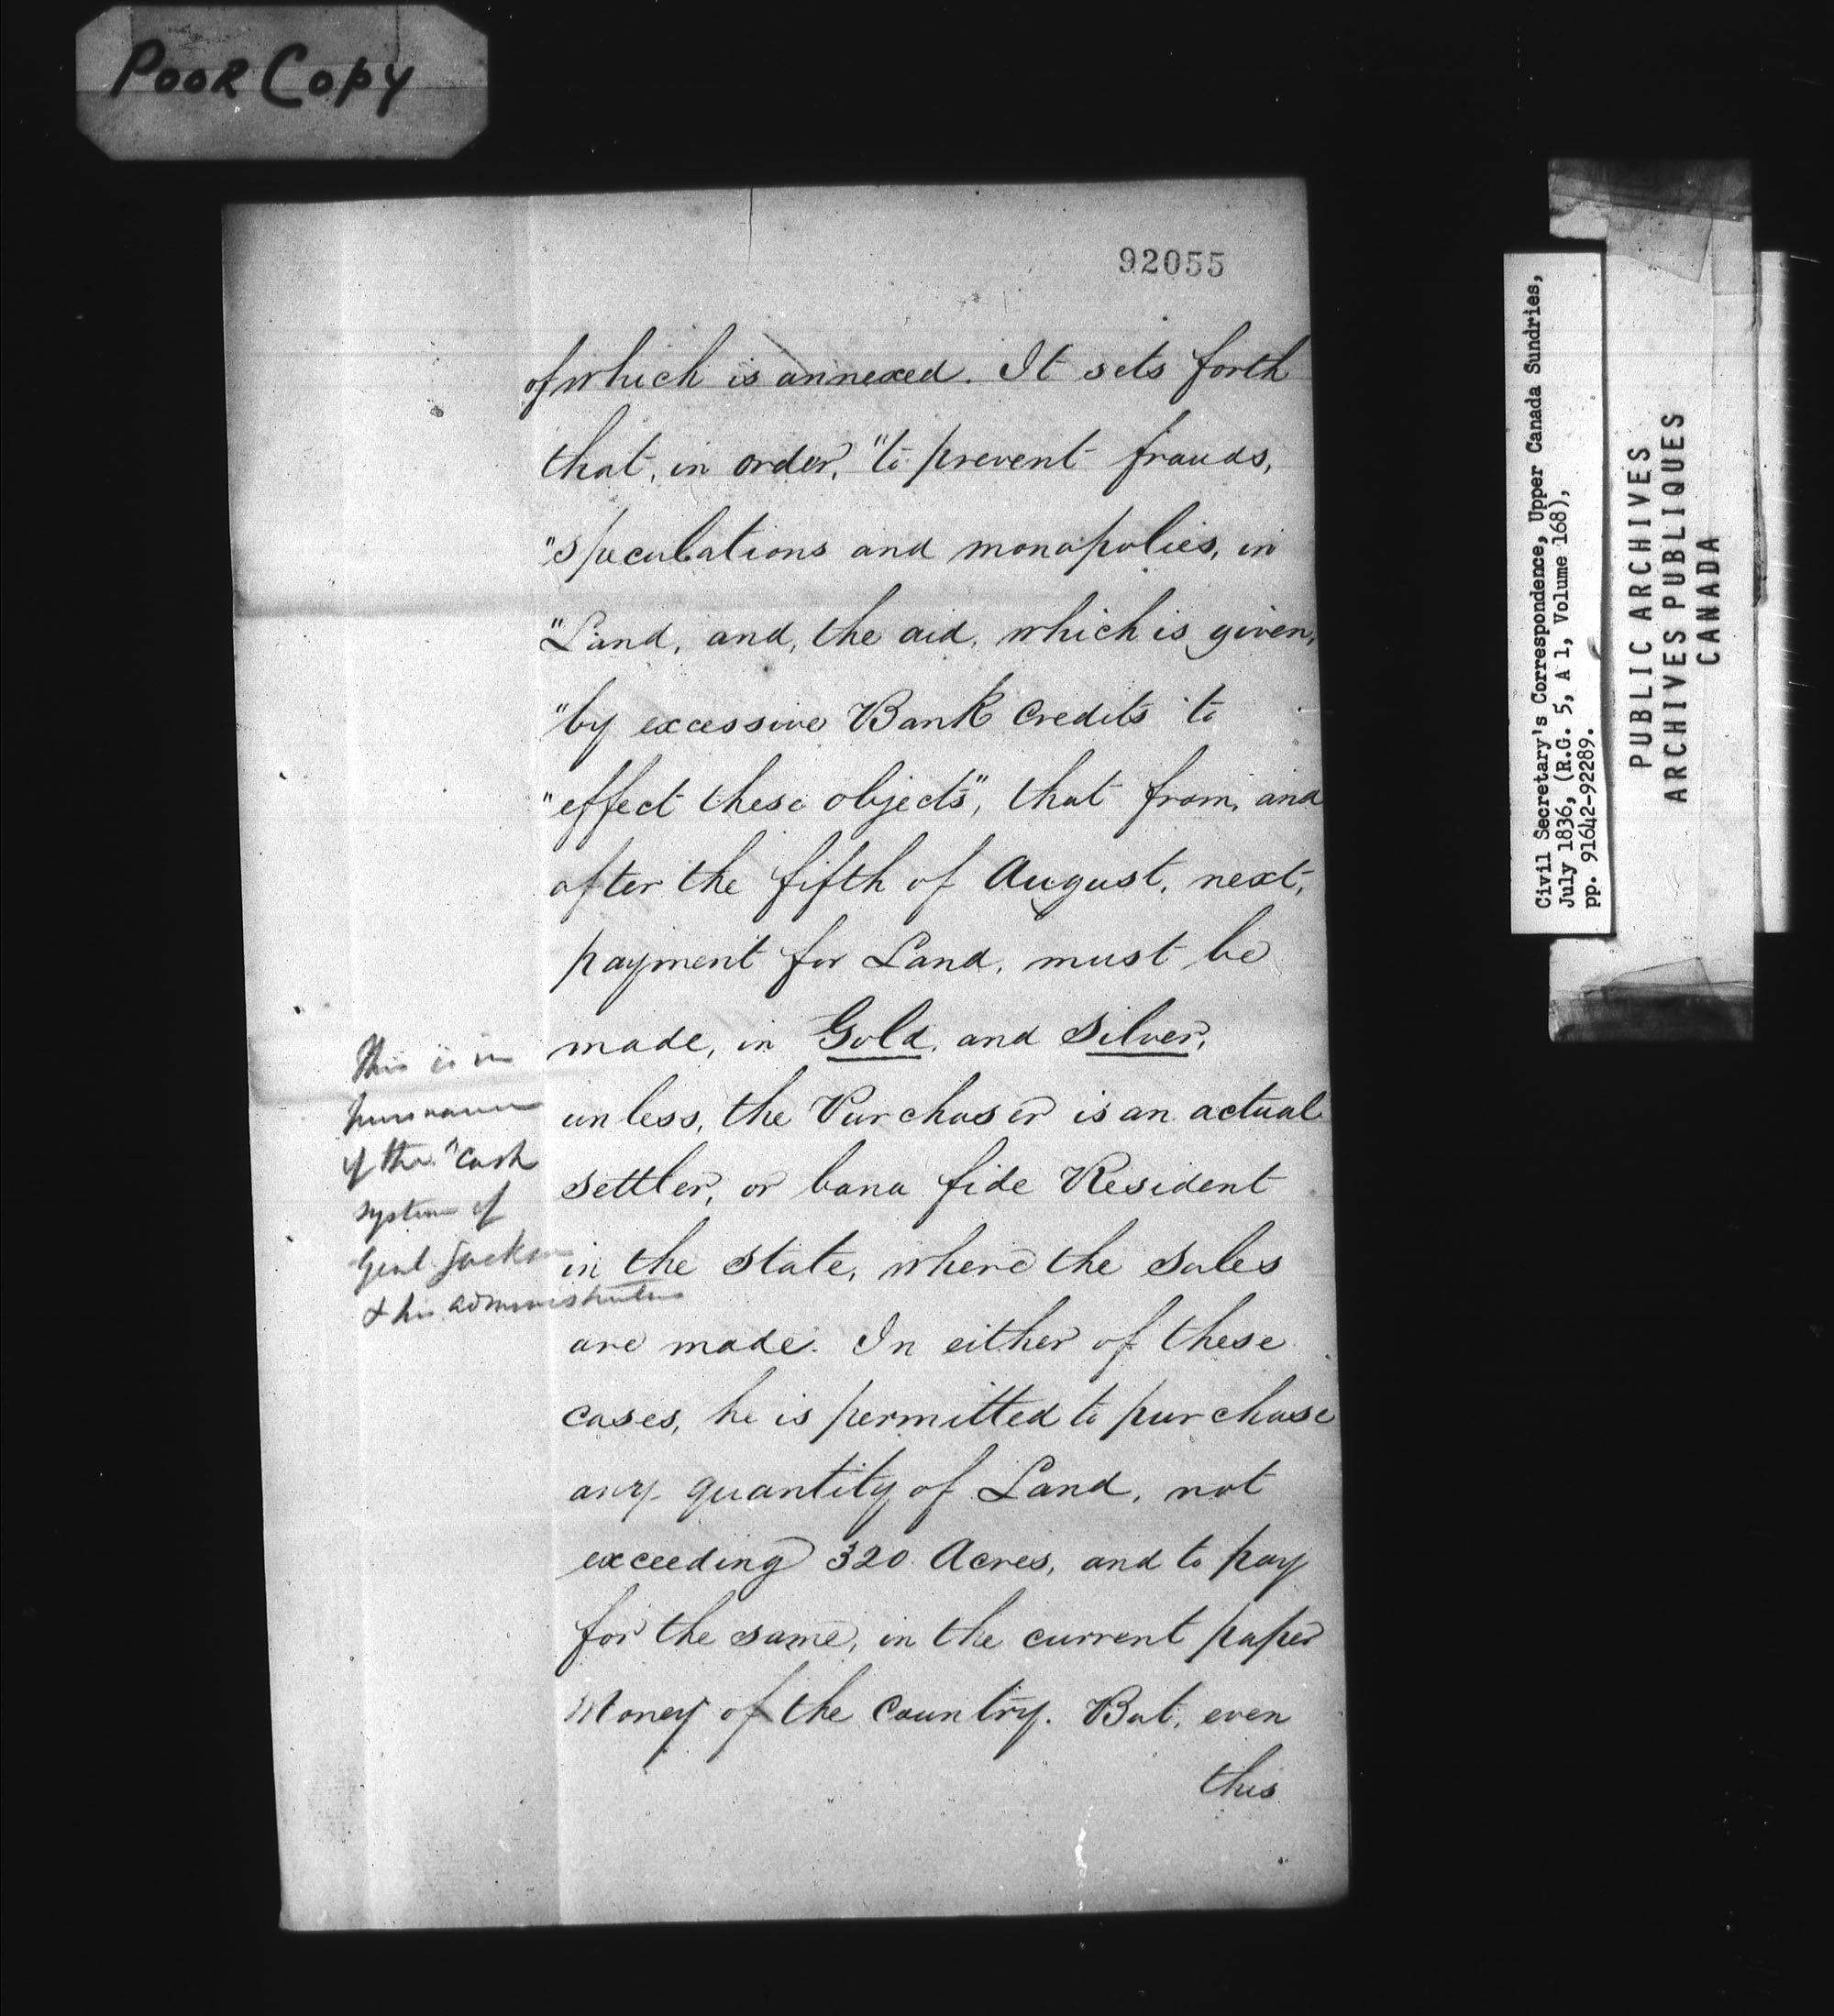 Poor Copy
92055
of which is annexed. It sets forth
that, in order, "to prevent frauds,
"speculations and monopolies, in
"Land, and, the aid, which is given,
"by excessive Bank Credits to
"effect these objects", that from, and
after the fifth of August, next,
payment for Land, must be
made, in Gold, and Silver,
unless, the Purchaser is an actual
settler, or bona fide Resident
in the State, where the Sales
are made. In either of these
cases, he is permitted to purchase
any quantity of Land, not
exceeding 320 Acres, and to pay
for the same, in the current paper
Money of the Country. But, even
this
This is in
pursuance
of the "Cash
system of
Genl Jackson
& his administration
Civil Secretary's Correspondence, Upper Canada Sundries,
July 1836, (R.G. 5, A 1, Volume 168),
pp. 91642-92289.
PUBLIC ARCHIVES
ARCHIVES PUBLIQUES
CANADA